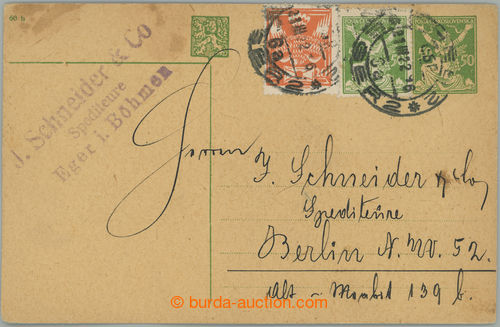 60 h
J. Schneider & Co
Spediteure
Eger i. Böhmen
50
Herrn
J. Schneider & Co
Spediteure
Berlin N.W. 52.
Alt-Moabit 139 b.
© burda-auction.com